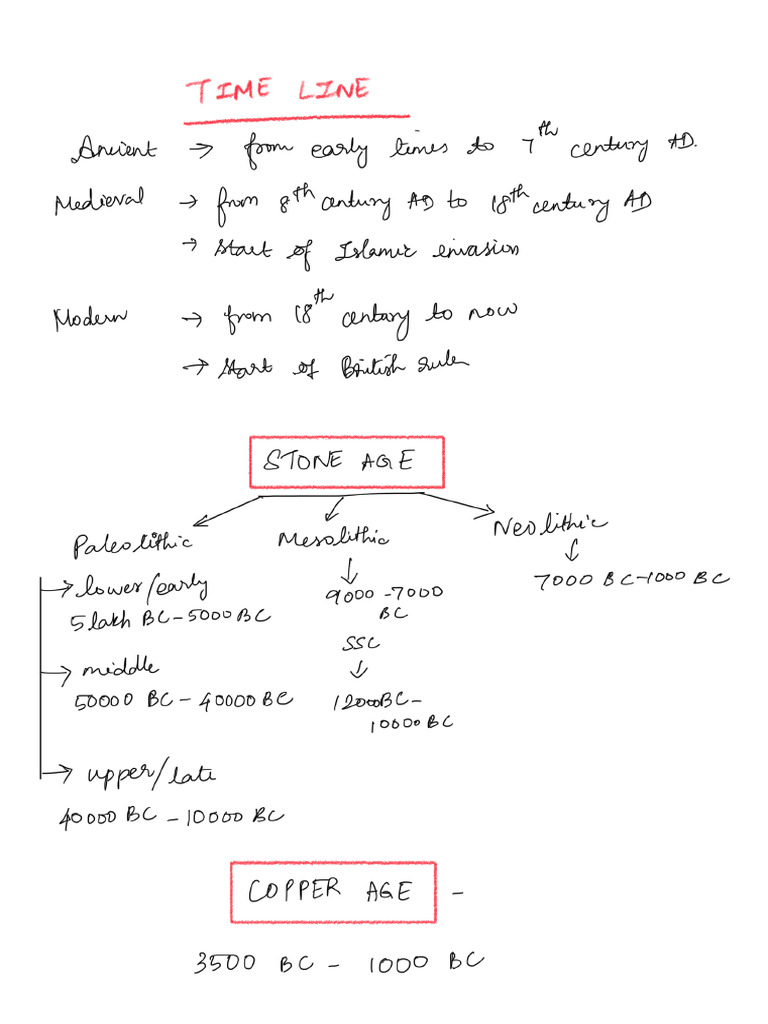 TIME LINE
Ancient → from early times to 7th century AD.
Medieval → from 8th century AD to 18th century AD
→ Start of Islamic envasion
Modern → from 18th century to now
→ Start of British rule
STONE AGE
Paleolithic
Mesolithic
Neolithic
→ lower/early
5 lakh BC - 5000 BC
→ middle
50000 BC - 40000 BC
→ upper/late
40000 BC - 10000 BC
9000 - 7000
BC
SSC
12000BC -
10000BC
7000 BC-1000 BC
COPPER AGE -
3500 BC - 1000 BC